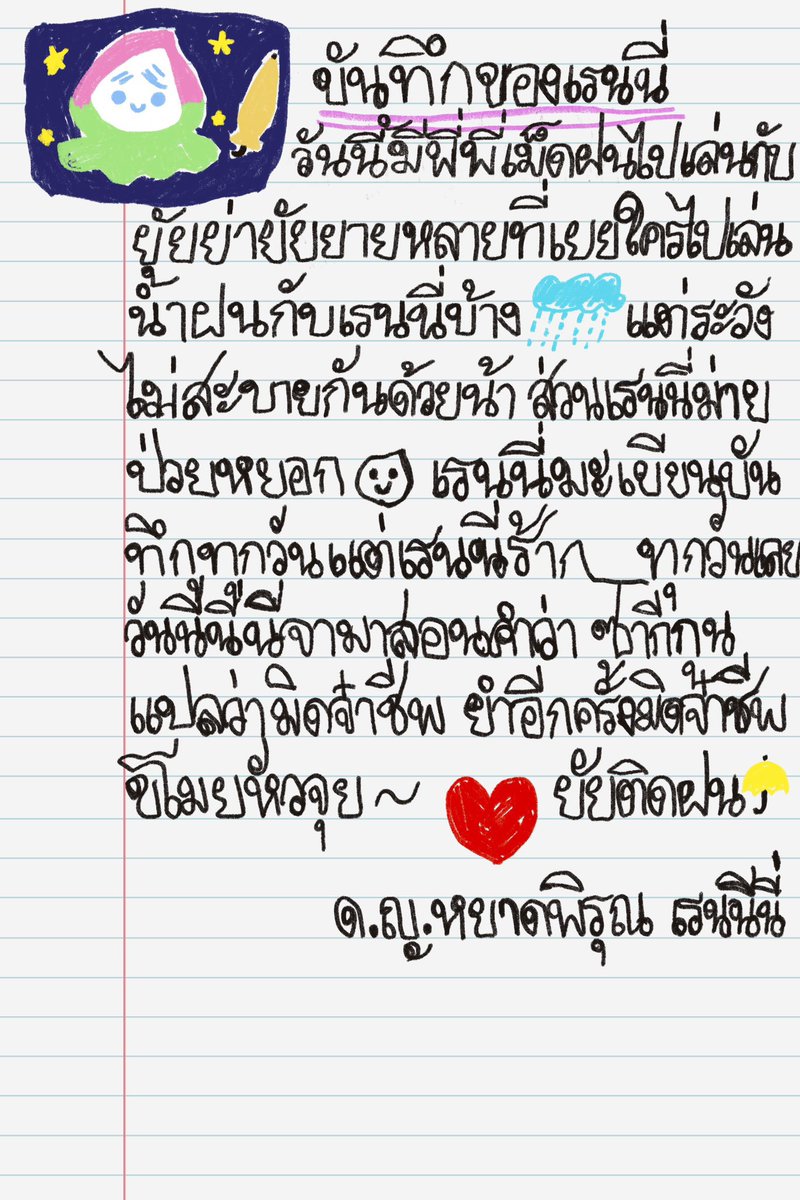 บันทึกของเรนนี่
วันนี้มีพี่พี่เม็ดฝนไปเล่นกับ
ยัยย่ายัยยายหลายที่เยยใครไปเล่น
น้ำฝนกับเรนนี่บ้าง แต่ระวัง
ไม่สะบายกันด้วยน้า ส่วนเรนนี่ม่าย
ป่วยหยอก เรนนี่มะเขียนบัน
ทึกทกวันแต่เรนนี่ร้าก ทกวันเลย
วันนี้นี่นี่จามาสอนคำว่า
แปลว่ามิดจ๋าชีพ ยำอีกครั้งมิดจ๋าชีพ
ขโมยหัวจุย~ ยัยติดฝน
ด.ญ.หยาดพิรุณ เรนนี่นี่